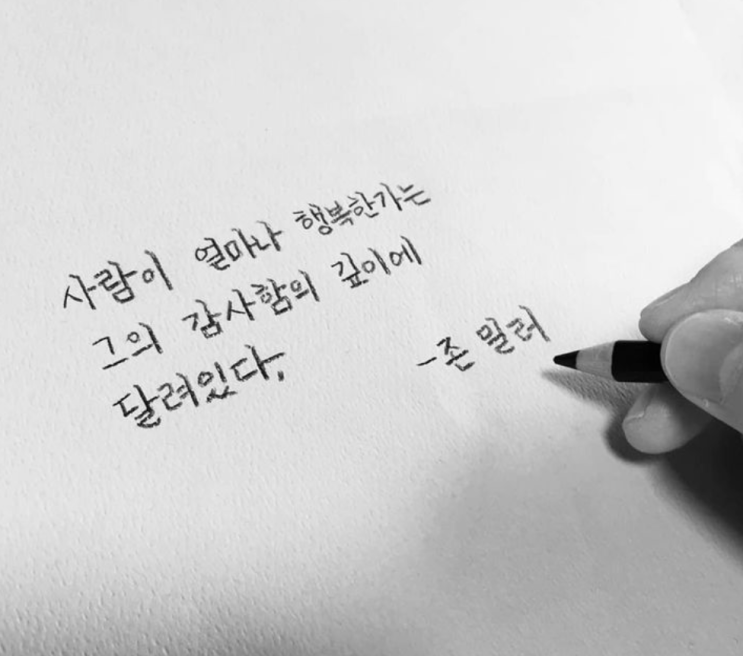 사람이 얼마나 행복한가는
그의 감사함의 깊이에
달려있다,
-존 밀러